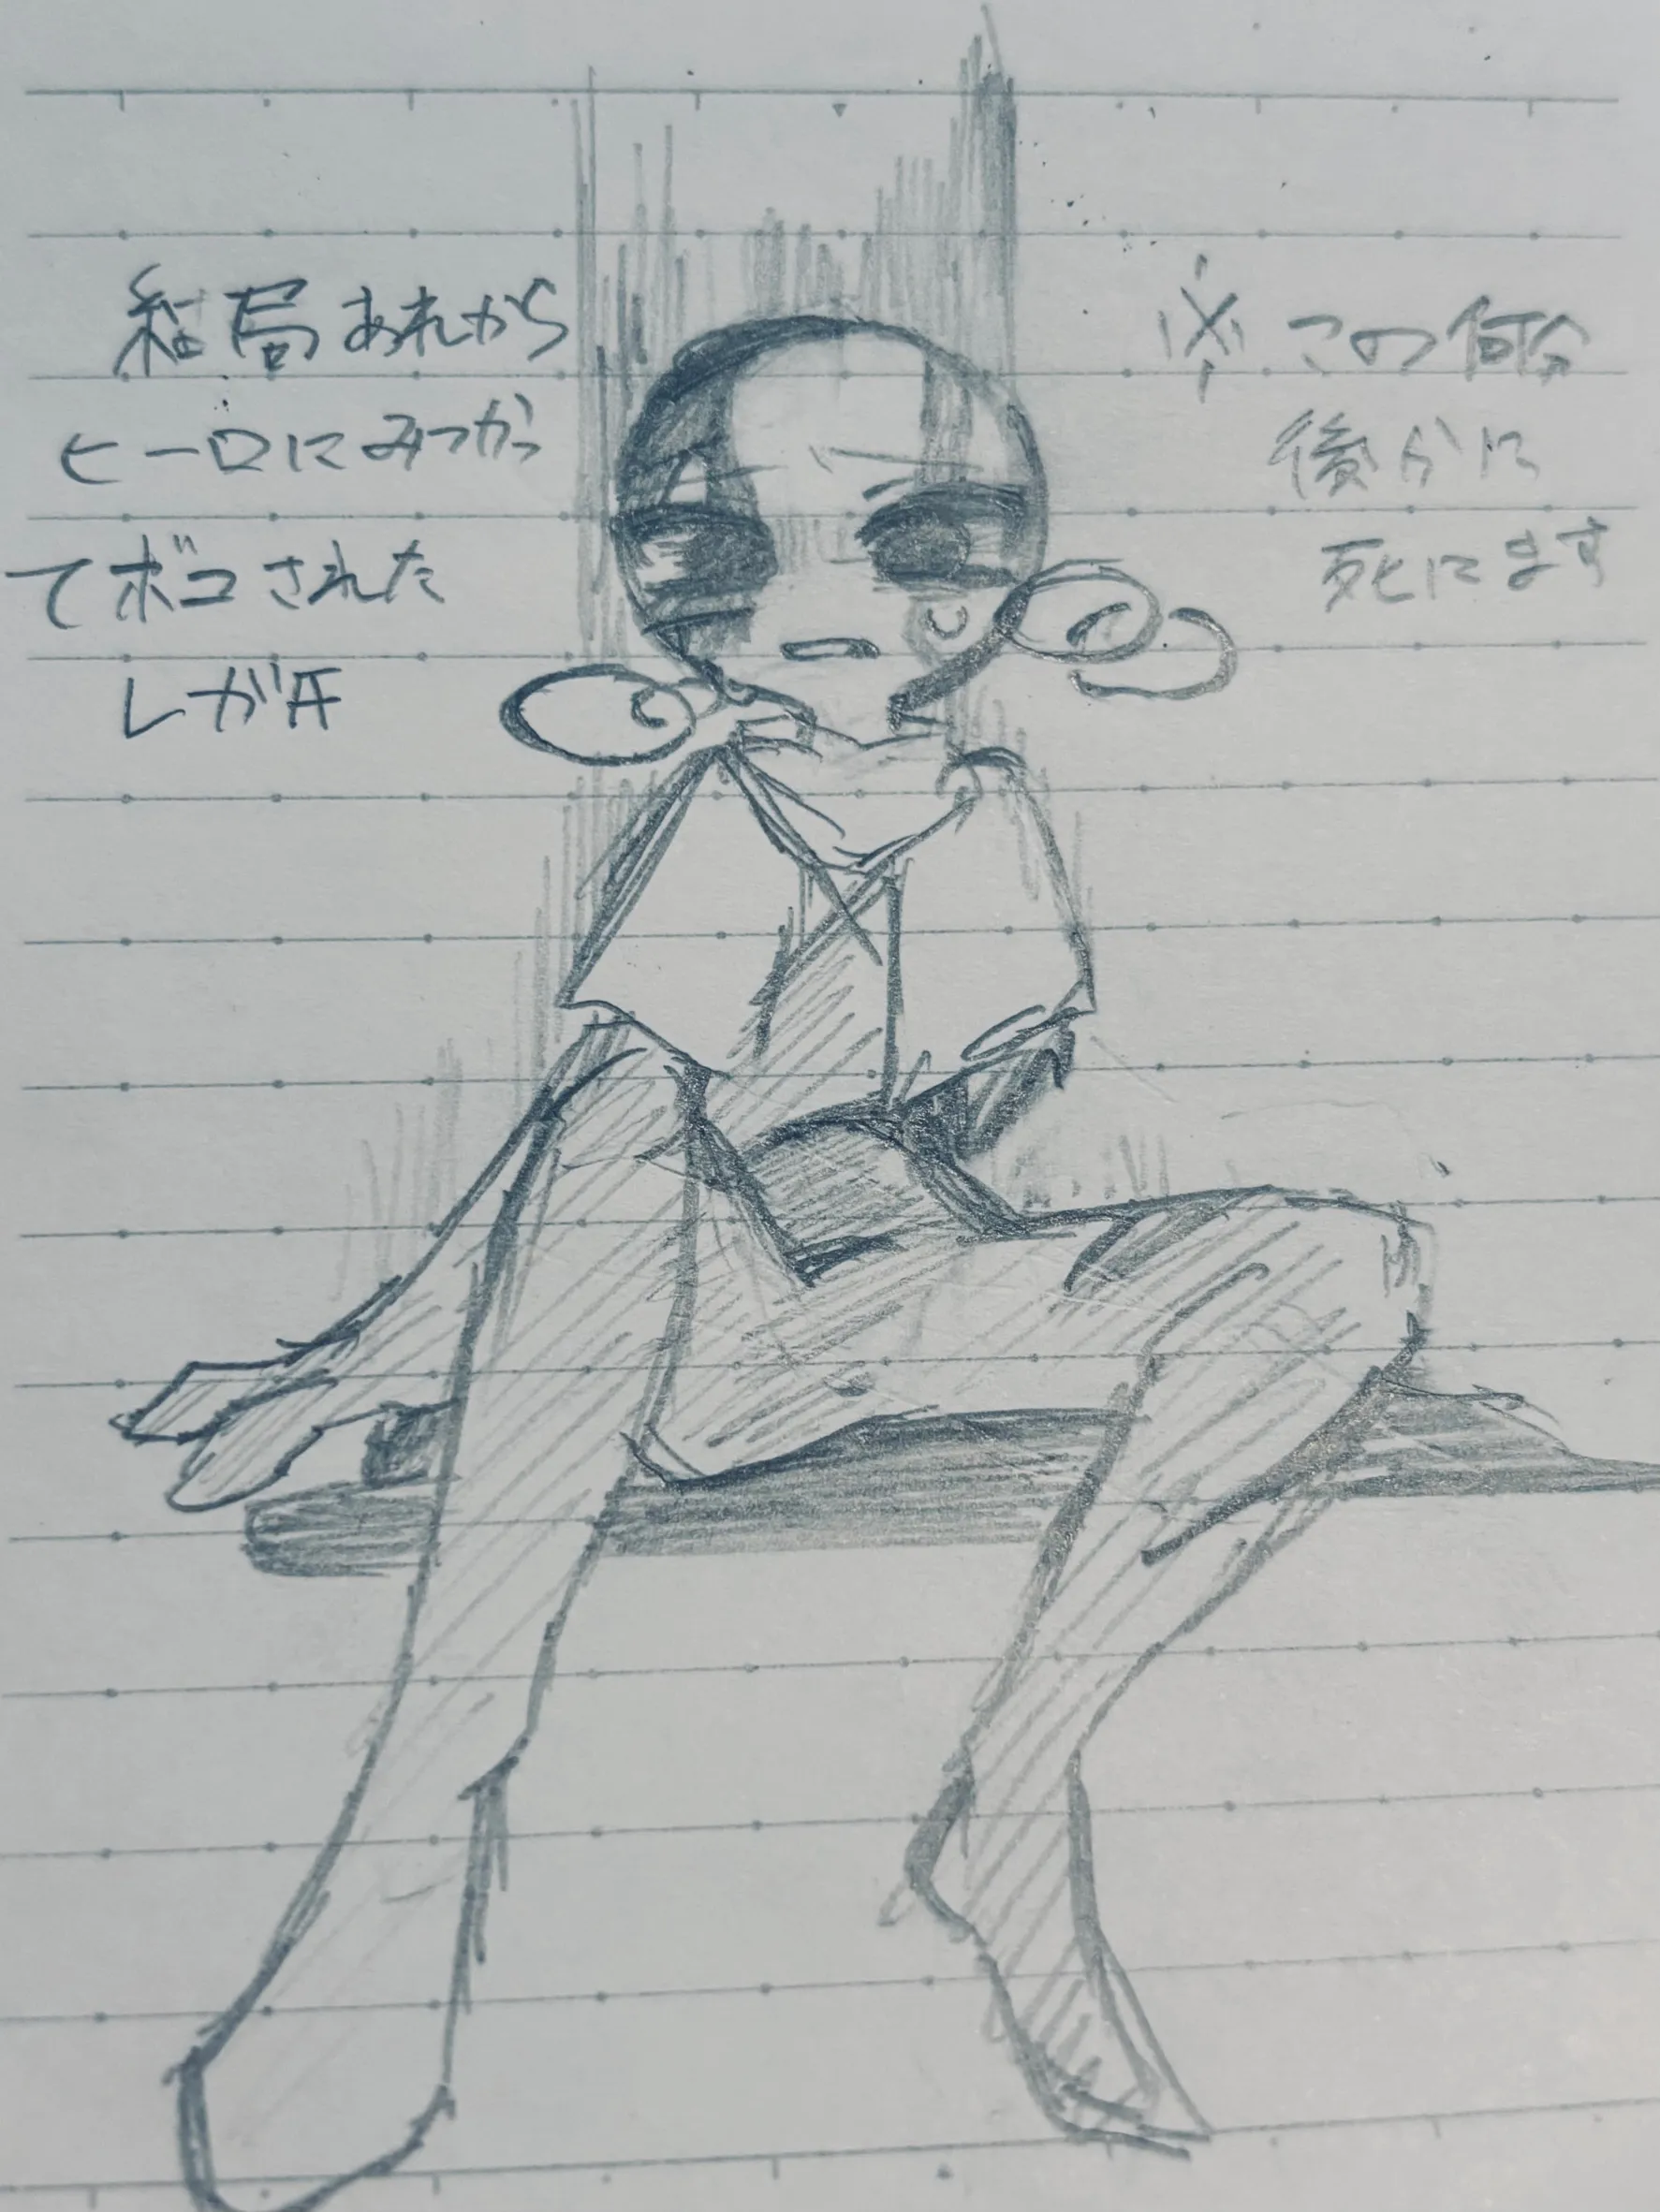 結局あれから
ヒーロにみつかっ
てボコされた
しが氏
※この何分
後かに
死にます